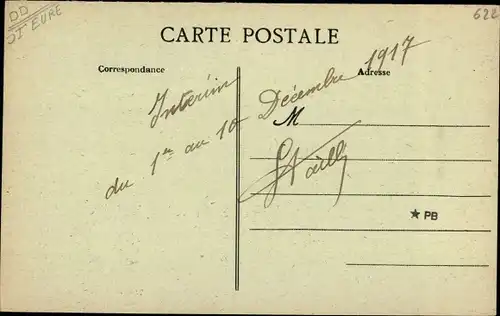 DD
ST EURE
622
CARTE POSTALE
Correspondance
Adresse
Interim
du 1er au 10 Décembre 1917
M
★ PB